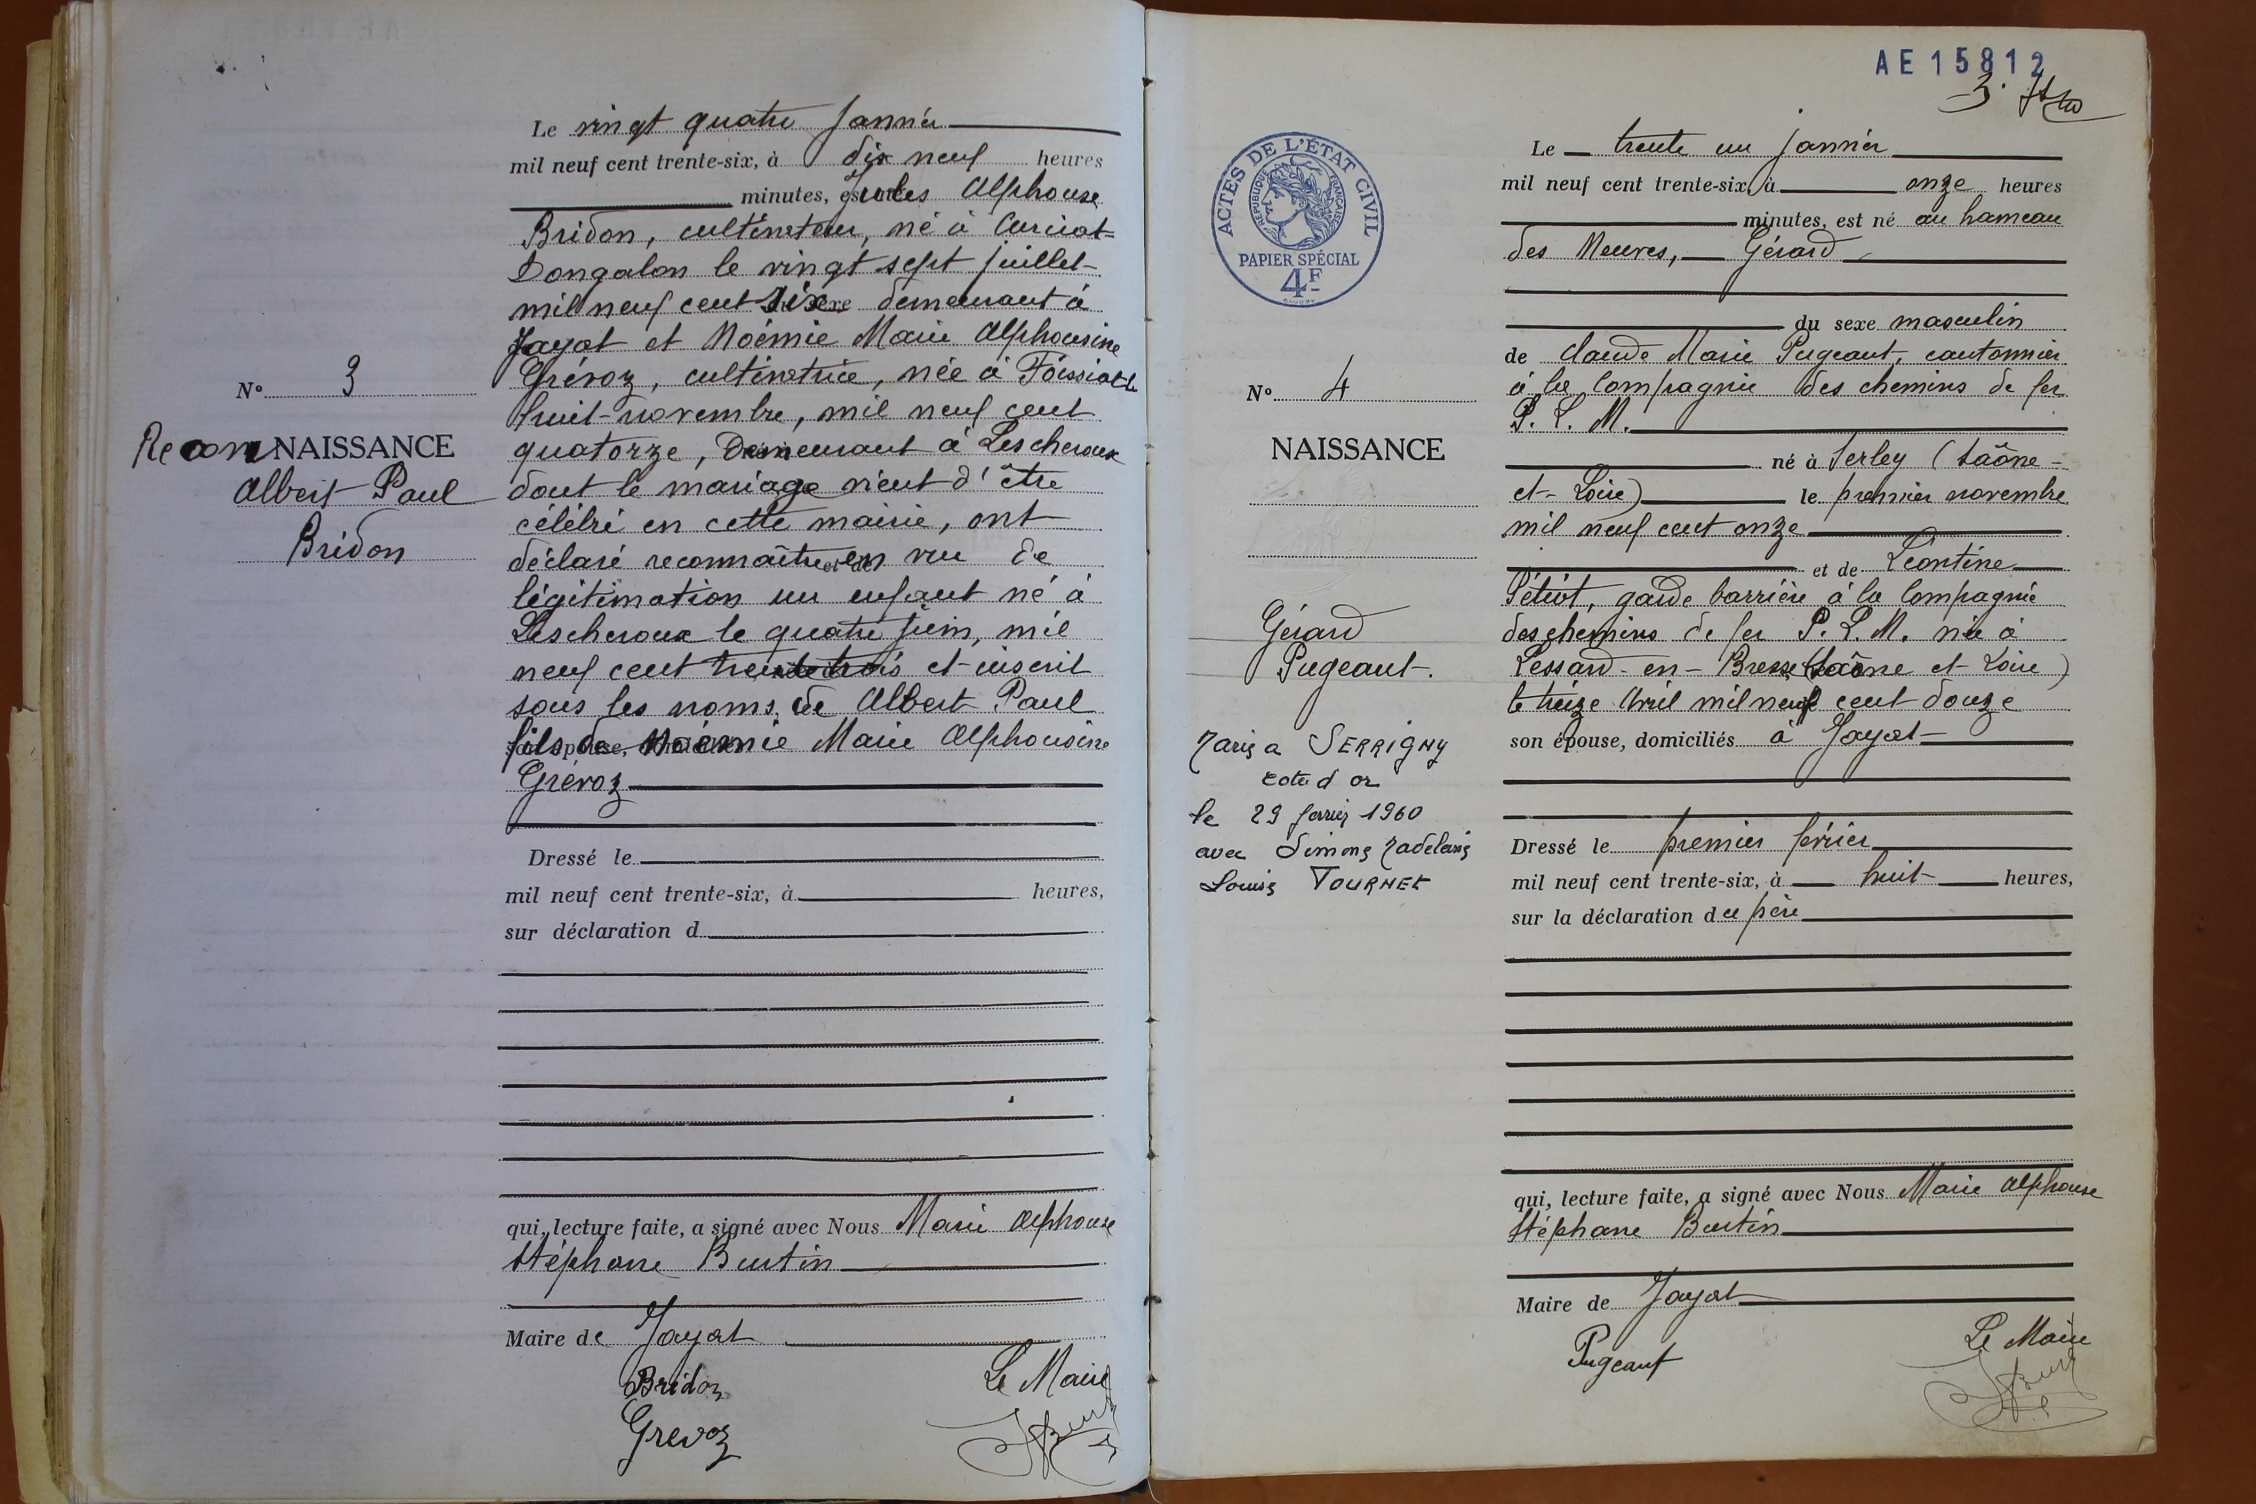 Le vingt quatre Janvier
mil neuf cent trente-six, à dix neuf heures
minutes, Jules Alphonse
Bridon, cultivateur, né à Curciat-
Dongalon le vingt sept juillet
mil neuf cent six demeurant à
Jayat et Noémie Marie Alphonsine
Grévoz, cultivatrice, née à Foissiat le
huit novembre, mil neuf cent
quatorze, Demeurant à Lescheroux
dont le mariage vient d'être
célébré en cette mairie, ont
déclaré reconnaître en vue de
légitimation un enfant né à
Lescheroux le quatre juin, mil
neuf cent trente trois et inscrit
sous les noms de Albert Paul
fils de Noémie Marie Alphonsine
Grévoz
N° 3
ReconNAISSANCE
Albert Paul
Bridon
Dressé le
mil neuf cent trente-six, à heures,
sur déclaration d
qui, lecture faite, a signé avec Nous Marie Alphonse
Stéphane Burtin
Maire de Jayat
Bridon
Grevoz
Le Maire
AE15812
3.
ACTES DE L'ÉTAT CIVIL
RÉPUBLIQUE FRANÇAISE
PAPIER SPÉCIAL
4F
N° 4
NAISSANCE
Gérard
Pugeaut.
Marié a SERRIGNY
cote d or
le 29 fevrier 1960
avec Simone Madeleine
Louise TOURNEX
Le trente un janvier
mil neuf cent trente-six, à onze heures
minutes, est né au hameau
des Neuves, Gérard
du sexe masculin
de Claude Marie Pugeaut, cantonnier
à la Compagnie des chemins de fer
P. L. M.
né à Serley (Saône-
et-Loire) le premier novembre
mil neuf cent onze
et de Léontine
Pétiot, garde barrière à la Compagnie
des chemins de fer P. L. M. née à
Lessard-en-Bresse (Saône et Loire)
le treize Avril mil neuf cent douze
son épouse, domiciliés à Jayat
Dressé le premier février
mil neuf cent trente-six, à huit heures,
sur la déclaration du père
qui, lecture faite, a signé avec Nous Marie Alphonse
Stéphane Burtin
Maire de Jayat
Pugeaut
Le Maire